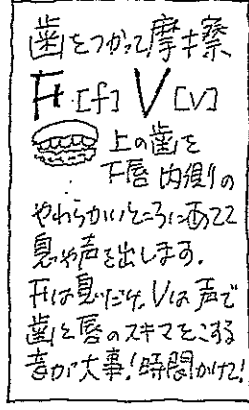 歯をつかって摩擦
F [f] V [v]
上の歯を
下唇 内側の
やわらかいところにあてて
息や声を出します。
Fは息だけ、Vは声で
歯と唇のスキマをこする
音が大事!時間かけて!